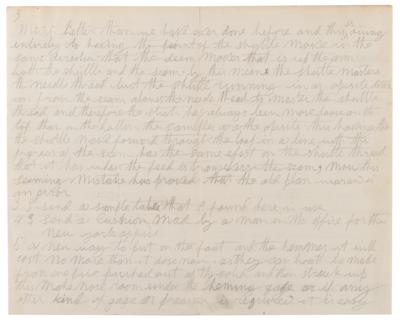 3
much better than we have ever done before and this is owing
entirely to having the point of the shuttle move in the
same direction that the seam moves that is up the arm
both the shuttle and the seam by this means the shuttle masters
the needle thread but the shuttle running in an opposite direction
from the seam alows the needle thread to master the shuttle
thread and therefore the stitch has always been more loose on the
top than on the bottom the samples are the opposite this having the
the shuttle move forward through the loop in a line with the
progress of the seam has the same efect on the shuttle thread
that it has under the feed
seaming Mistake has proved that the old plan was
in error
3 I send a sample table that I found here in use
4 I send a Cushion Mad by a man in the office for the
New york office
5 a new way to put on the foot and the hemmer it will
cost no more than it dose now as they can both be made
from one pice punched out of the solid and then struck up
this makes more room under the heming gage or if any
other kind of gage or presser is required it is easy